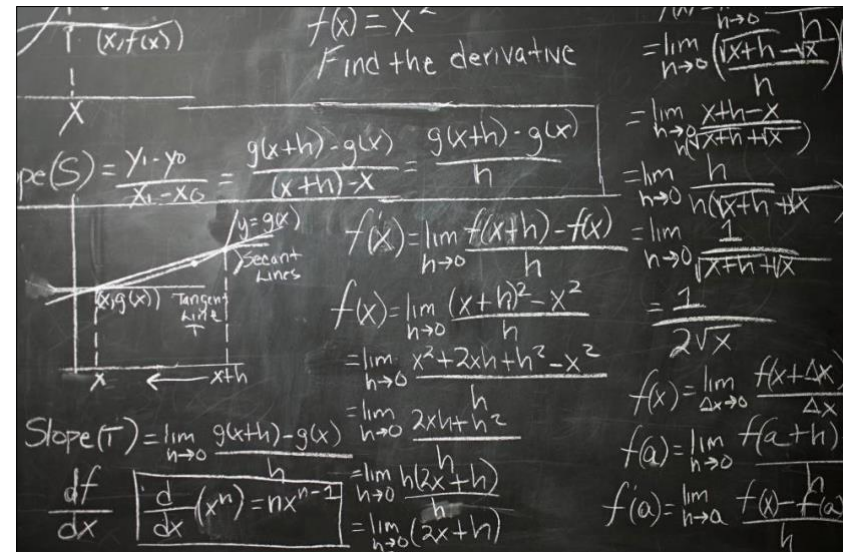 (x,f(x))
x
f(x) = x²
Find the derivative
pe(S) = y₁-y₀/x₁-x₀ = g(x+h)-g(x)/(x+h)-x = g(x+h)-g(x)/h
y=g(x)
Secant
Lines
(x,g(x))
Tangent
Line
T
x ← x+h
Slope(T) = lim h→0 g(x+h)-g(x)/h
df/dx
d/dx (xⁿ) = nxⁿ⁻¹
f'(x) = lim h→0 f(x+h)-f(x)/h
f(x) = lim h→0 (x+h)²-x²/h
= lim h→0 x²+2xh+h²-x²/h
= lim h→0 2xh+h²/h
= lim h→0 h(2x+h)/h
= lim h→0 (2x+h)
h→0 h
= lim h→0 (√x+h-√x/h)(
= lim h→0 x+h-x/h(√x+h+√x)
= lim h→0 h/h(√x+h+√x
= lim h→0 1/√x+h+√x
= 1/2√x
f(x) = lim Δx→0 f(x+Δx)/Δx
f(a) = lim h→0 f(a+h)/h
f'(a) = lim h→a f(x)-f(a)/h